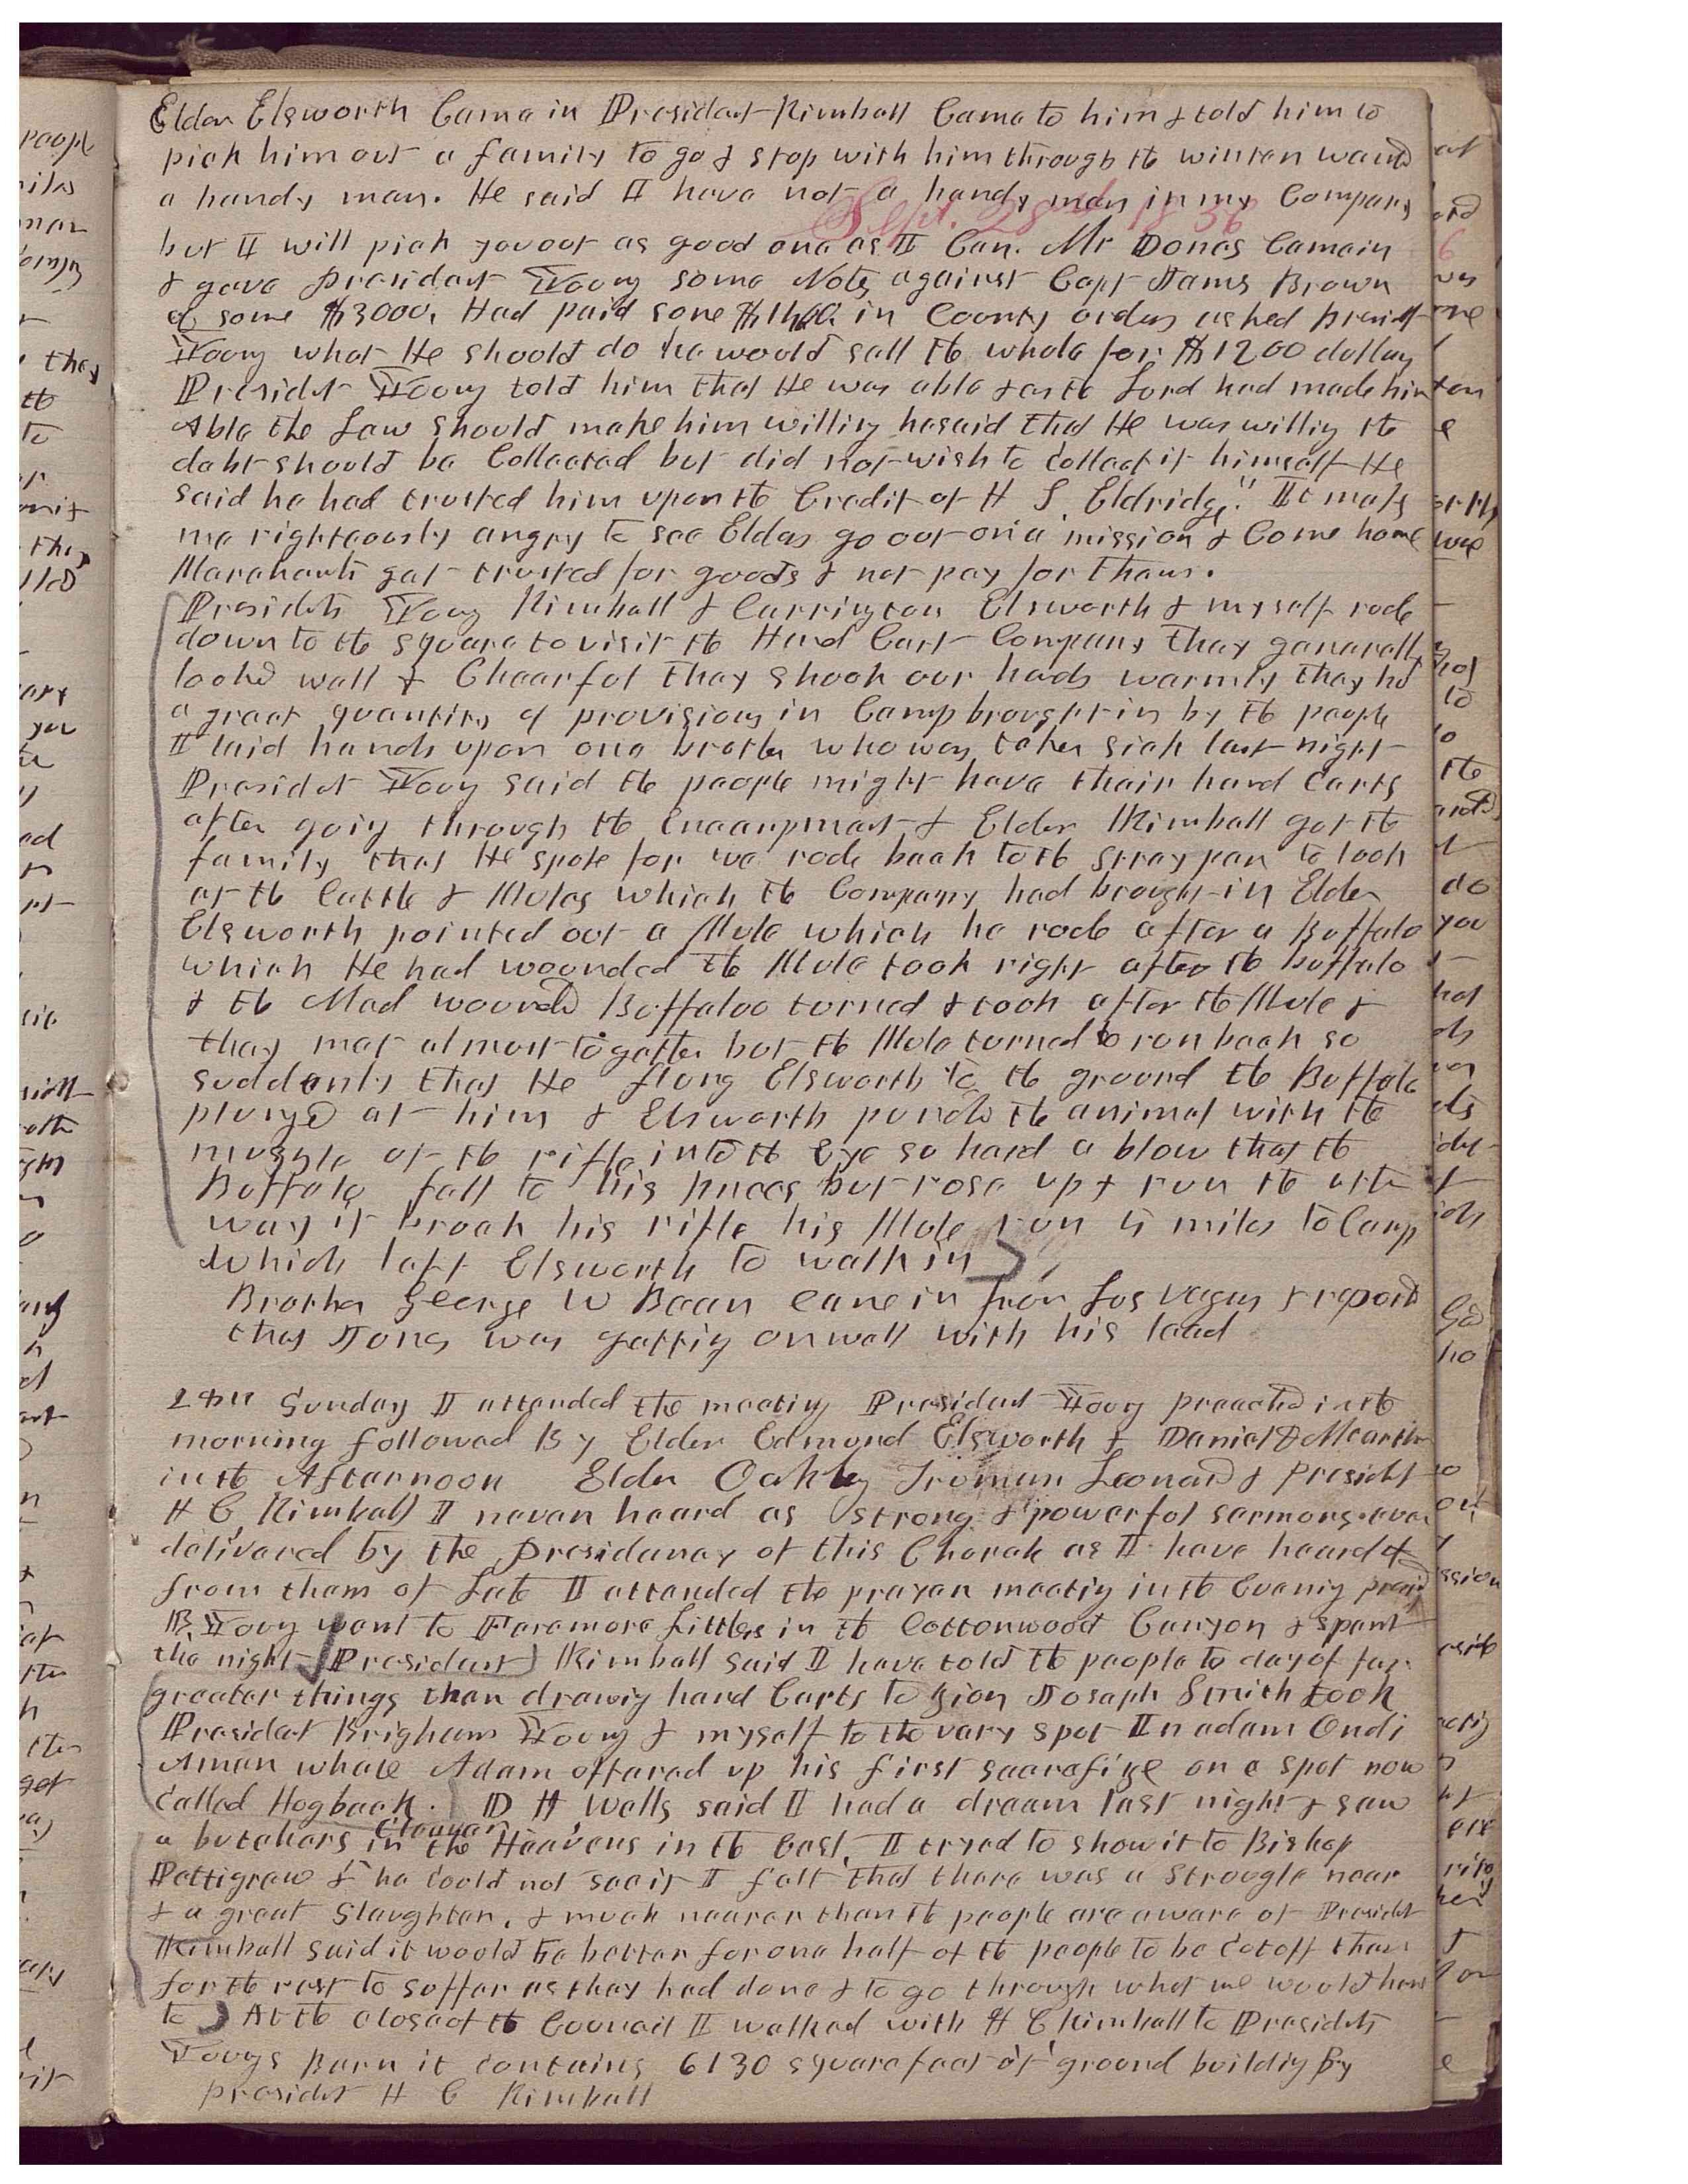 Elder Elsworth Came in President Kimball Came to him & told him to
pick him out a family to go & stop with him through the winter want
a handy man. He said I have not a handy man in my Company
Sept. 28 1856
but I will pick you out as good one as I Can. Mr Jones Came in
& gave President Young some Notes against Capt James Brown
of some $3000, Had paid some in County orders asked Presidt
Young what He should do he would sell the whole for $1200 dollars
Presidet Young told him that He was able & as the Lord had made him
Able the Law should make him willing he said that He was willing the
debt should be Collected but did not wish to Collect it himself He
said he had trusted him upon the Credit of H S. Eldridge." It makes
me righteously angry to see Elders go out on a mission & Come home
Marchants get trusted for goods & not pay for them.
Presidets Young Kimball & Carrington Elsworth & myself rode
down to the square to visit the Hand Cart Company They generally
looked well & Chearful They shook our hands warmly they had
a great quantity of provisions in Camp brought in by the people
I laid hands upon one brother who was taken sick last night
Presidet Young said the people might have their hand Carts
after going through the Encampment & Elder Kimball got the
family that He spoke for we rode back to the stray pen to look
at the Cattle & Mules which the Company had brought in Elder
Elsworth pointed out a Mule which he rode after a Buffalo
which He had wounded the Mule took right after the Buffalo
& the Mad wounded Buffaloo turned & took after the Mule &
they met almost togather but the Mule turned to run back so
suddenly that He flung Elsworth to the ground the Buffalo
plunged at him & Elsworth punched the animal with the
muzzle of the rifle into the Eye so hard a blow that the
Buffalo fell to his knees but rose up & run the other
way it broak his rifle his Mule run 4 miles to Camp
which left Elsworth to walk in
Brother George W Bean came in from Los vegus & reported
that Jones was getting on well with his lead
28th Sunday I attended the meeting President Young preached in the
morning followed By Elder Edmond Elsworth & Daniel D McArthur
in the Afternoon Elder Oakley Truman Leonard & Presidet
H C Kimball I never heard as strong & powerful sermons ever
delivered by the Presidency of this Church as I have heard
from them of Late I attended the prayer meeting in the Evening presid
B Young went to Faramore Littles in the Cottonwood Canyon & spent
the night President Kimball said I have told the people to day of far
greater things than drawing hand Carts to Zion Joseph Smith took
President Brigham Young & myself to the vary spot In adam Ondi
Aman whare Adam offered up his first sacrafize on a spot now
Called Hogback. D H Wells said I had a dream last night & saw
cleaver
a butchers in the Heavens in the East, I tryed to show it to Bishop
Pettigrew & he Could not see it I felt that there was a Struggle near
& a great Slaughter, & much nearer than the people are aware of Presidet
Kimball said it would be better for one half of the people to be Cut off than
for the rest to suffer as they had done & to go through what we would have
to At the close of the Council I walked with H C Kimball to Presidets
Youngs Barn it contains 6130 square feet of ground building By
presidet H C Kimball